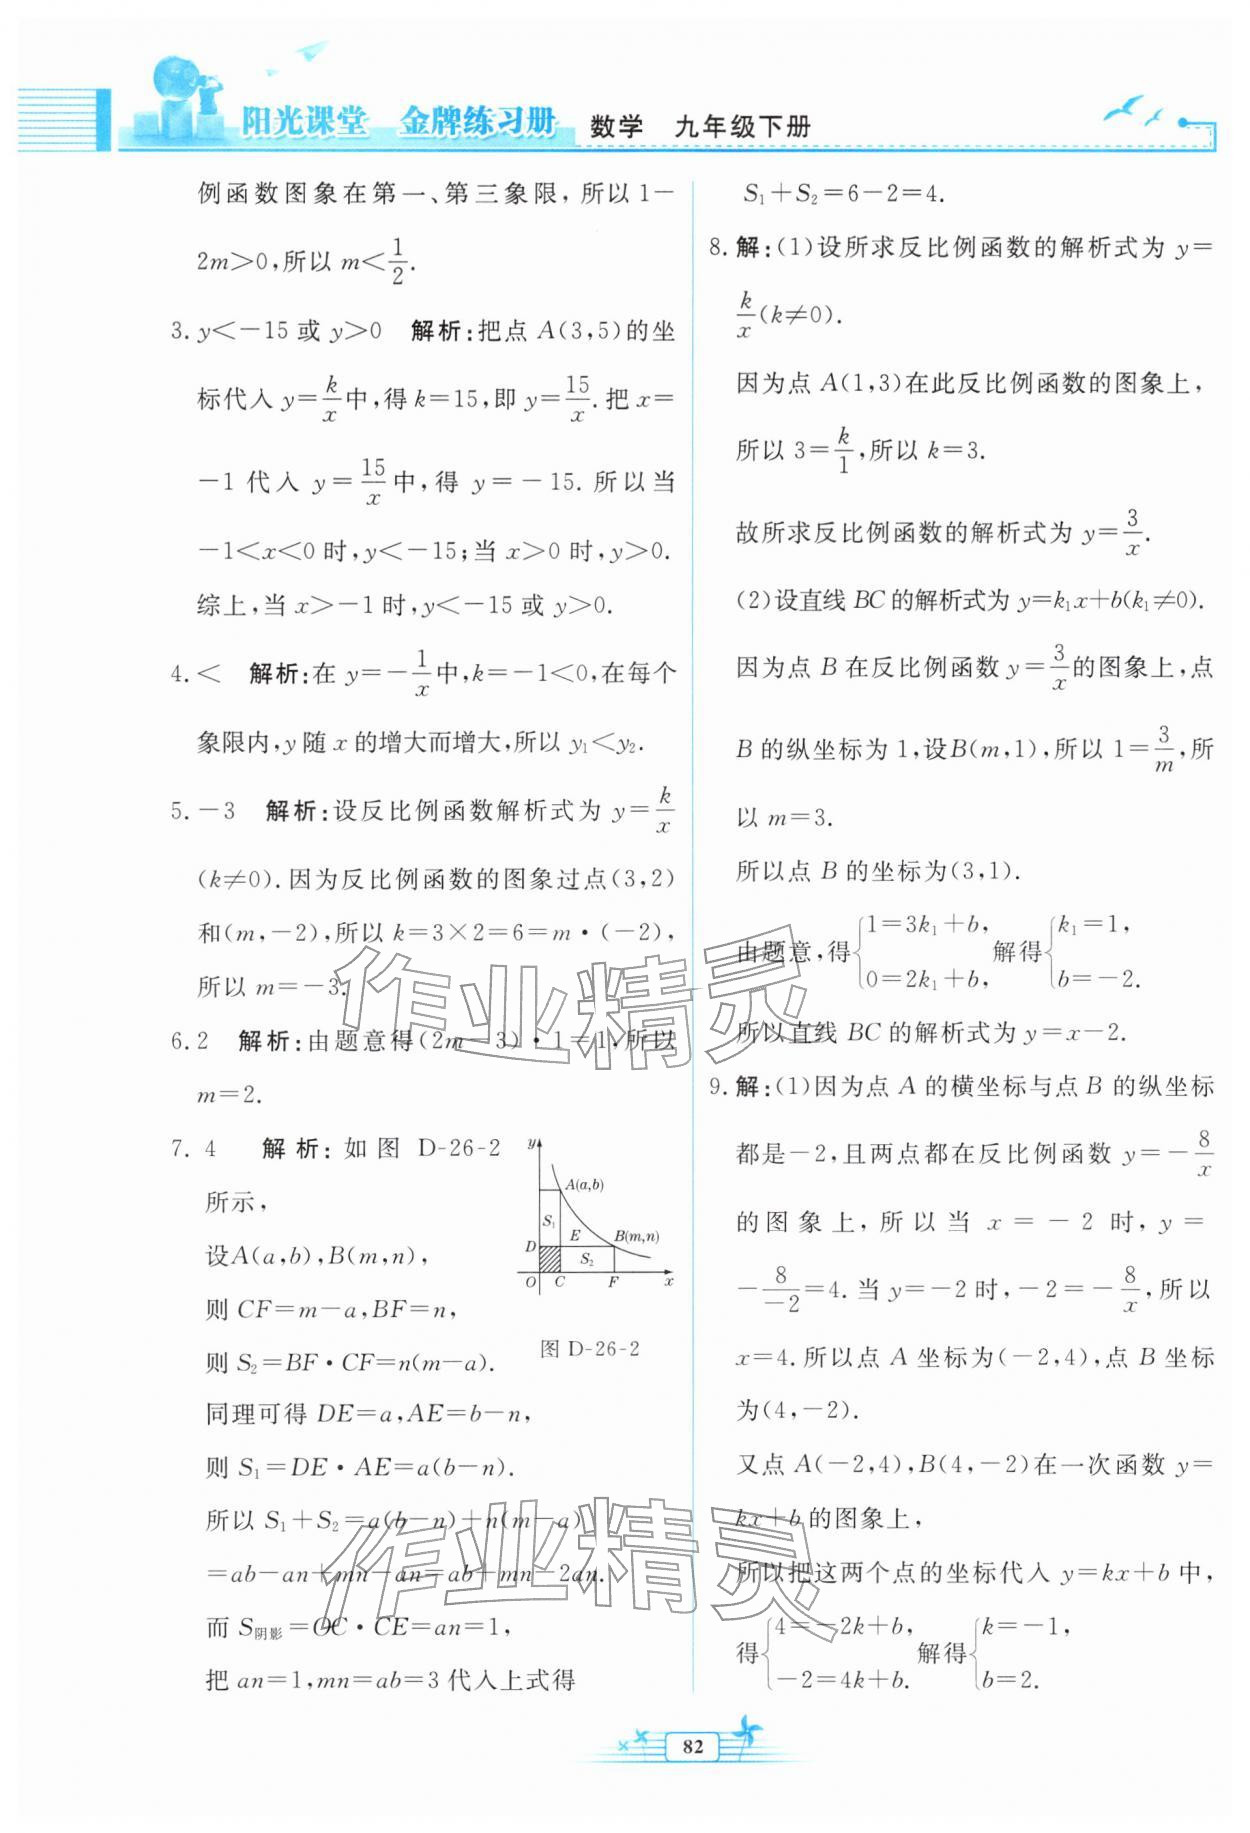 阳光课堂 金牌练习册 数学 九年级下册
例函数图象在第一、第三象限,所以1-
2m>0,所以 m<1/2.
3. y<-15 或 y>0 解析:把点 A(3,5)的坐
标代入 y=k/x中,得 k=15,即 y=15/x.把 x=
-1 代入 y=15/x中,得 y=-15.所以当
-1<x<0 时,y<-15;当 x>0 时,y>0.
综上,当 x>-1 时,y<-15 或 y>0.
4. < 解析:在 y=-1/x中,k=-1<0,在每个
象限内,y 随 x 的增大而增大,所以 y₁<y₂.
5. -3 解析:设反比例函数解析式为 y=k/x
(k≠0).因为反比例函数的图象过点(3,2)
和(m,-2),所以 k=3×2=6=m·(-2),
所以 m=-3.
6. 2 解析:由题意得(2m-3)·1=1,所以
m=2.
7. 4 解析:如图 D-26-2
所示,
设A(a,b),B(m,n),
则 CF=m-a,BF=n,
则 S₂=BF·CF=n(m-a).
同理可得 DE=a,AE=b-n,
则 S₁=DE·AE=a(b-n).
所以 S₁+S₂=a(b-n)+n(m-a)
=ab-an+mn-an=ab+mn-2an.
而 S阴影=OC·CE=an=1,
把 an=1,mn=ab=3 代入上式得
y
A(a,b)
S₁
E
B(m,n)
D
S₂
O
C
F
x
图 D-26-2
S₁+S₂=6-2=4.
8. 解:(1)设所求反比例函数的解析式为 y=
k/x(k≠0).
因为点 A(1,3)在此反比例函数的图象上,
所以 3=k/1,所以 k=3.
故所求反比例函数的解析式为 y=3/x.
(2)设直线 BC 的解析式为 y=k₁x+b(k₁≠0).
因为点 B 在反比例函数 y=3/x的图象上,点
B 的纵坐标为 1,设B(m,1),所以 1=3/m,所
以 m=3.
所以点 B 的坐标为(3,1).
由题意,得{1=3k₁+b, 0=2k₁+b, 解得{k₁=1, b=-2.
所以直线 BC 的解析式为 y=x-2.
9. 解:(1)因为点 A 的横坐标与点 B 的纵坐标
都是-2,且两点都在反比例函数 y=-8/x
的图象上,所以当 x=-2 时,y=
-8/-2=4.当 y=-2 时,-2=-8/x,所以
x=4.所以点 A 坐标为(-2,4),点 B 坐标
为(4,-2).
又点 A(-2,4),B(4,-2)在一次函数 y=
kx+b 的图象上,
所以把这两个点的坐标代入 y=kx+b 中,
得{4=-2k+b, -2=4k+b. 解得{k=-1, b=2.
作业精灵
作业精灵
82